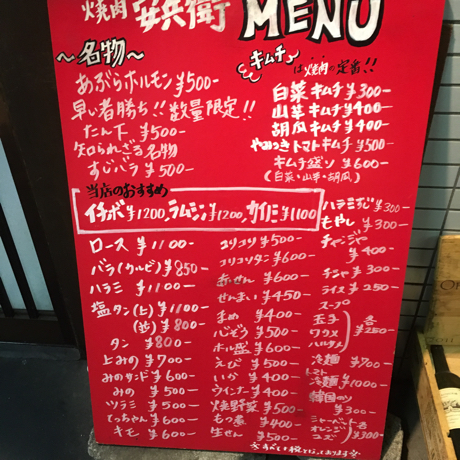 焼肉 安兵衛 MENU
～名物～
あぶらホルモン ¥500-
早い者勝ち!!数量限定!!
たん下 ¥500-
知られざる名物
すじバラ ¥500-
キムチ
は焼肉の定番!!
白菜キムチ ¥300-
山芋キムチ ¥400-
胡瓜キムチ ¥400-
やみつきトマトキムチ ¥500-
キムチ盛り ¥600-
(白菜・山芋・胡瓜)
当店のおすすめ
イチボ ¥1200、ラムシン ¥1200、カイノミ ¥1100
ロース ¥1100-
バラ(カルビ) ¥850-
ハラミ ¥1100-
塩タン(上) ¥1100-
(並) ¥800-
タン ¥800-
上みの ¥700-
みのサンド ¥600-
みの ¥500-
ツラミ ¥500-
てっちゃん ¥600-
キモ ¥600-
コリコリ ¥500-
コリコリタン ¥600-
赤せん ¥600-
せんまい ¥450-
まめ ¥400-
ハンぞう ¥500-
ホル盛 ¥600-
えび ¥500-
いか ¥400-
ウインナー ¥400-
焼野菜 ¥500-
もつ煮 ¥400-
生せん ¥500-
ハラミすじ ¥300-
もやし ¥300-
チャンジャ
¥400-
チシャ ¥300-
ライス ¥250-
スープ
玉子
ワカメ
ハルサメ
各
¥250-
冷麺 ¥700-
トマト
冷麺 ¥1000-
韓国のり
¥300-
シャーベット
オレンジ
ユズ
各
¥300-
※すべて税込となっております※